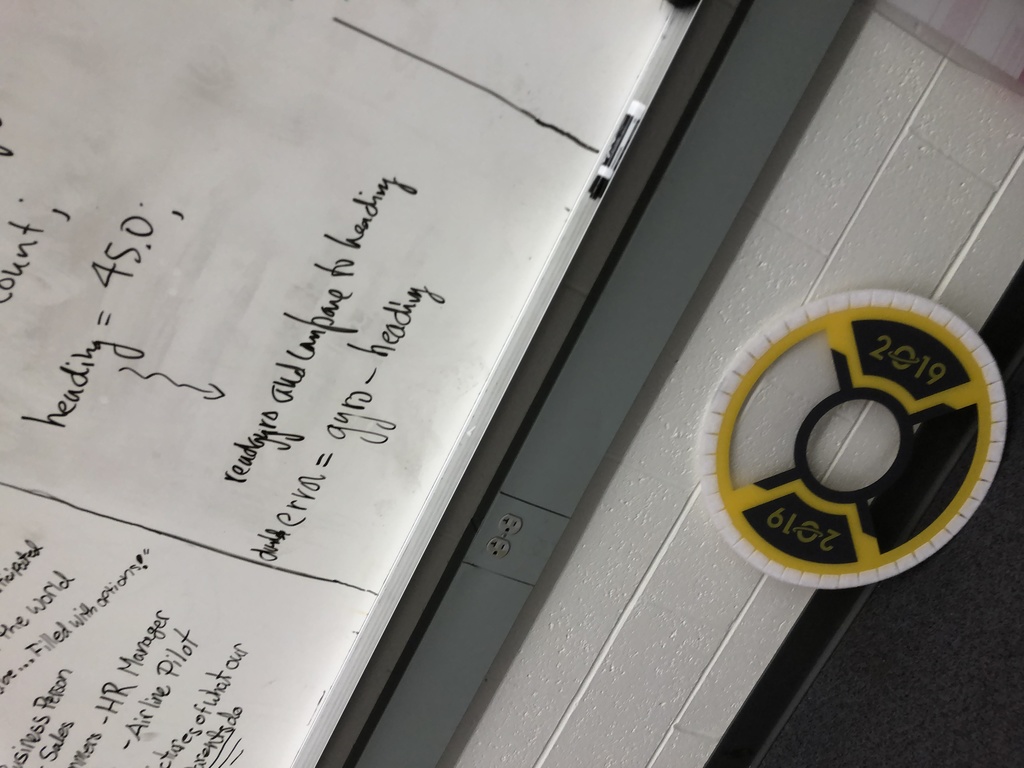 the world
... Filled with options!"
Business Person
Sales
- HR Manager
- Airline Pilot
of what our
parents do
count;
heading = 45.0;
readgyro and compare to heading
error = gyro - heading
2019
2019